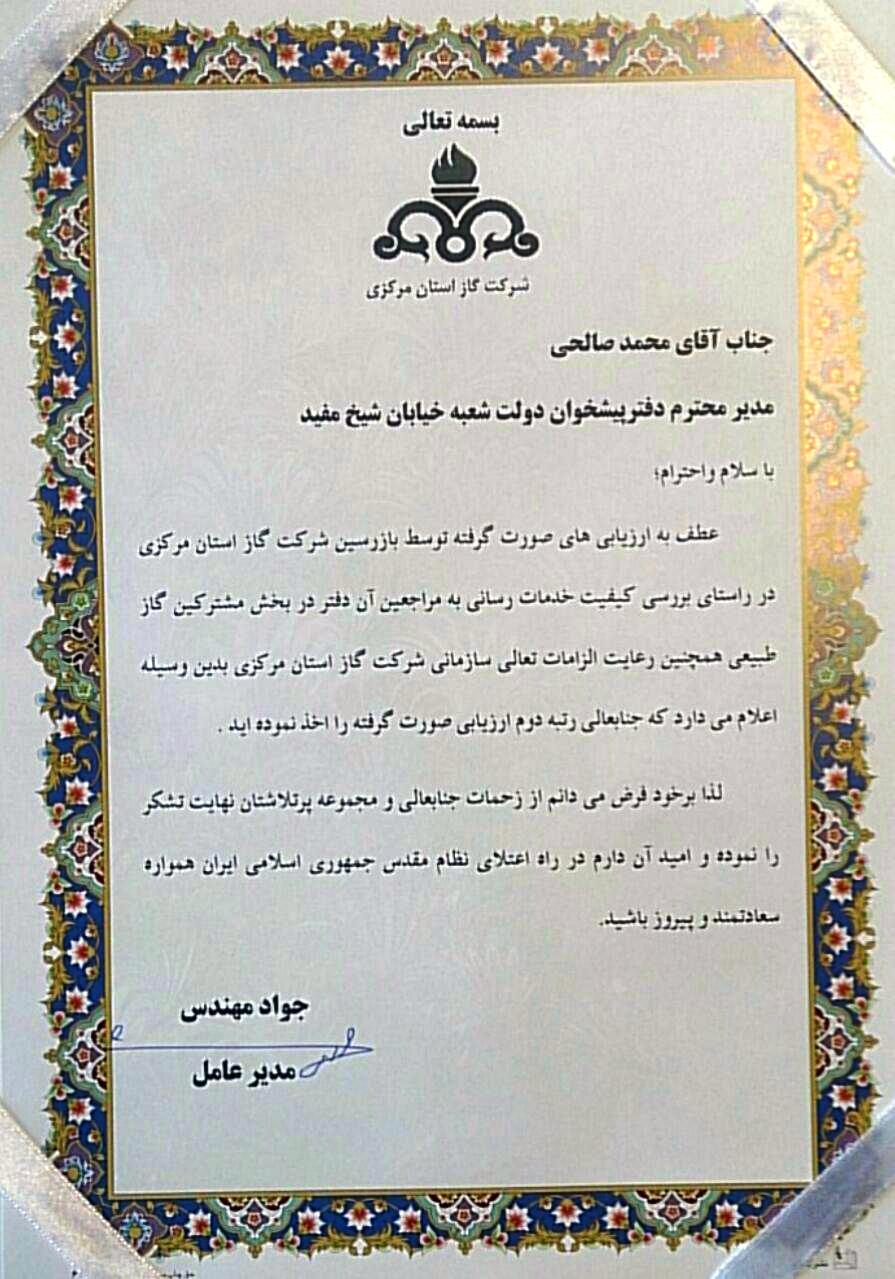 بسمه تعالی
شرکت گاز استان مرکزی
جناب آقای محمد صالحی
مدیر محترم دفترپیشخوان دولت شعبه خیابان شیخ مفید
با سلام واحترام؛
عطف به ارزیابی های صورت گرفته توسط بازرسین شرکت گاز استان مرکزی
در راستای بررسی کیفیت خدمات رسانی به مراجعین آن دفتر در بخش مشترکین گاز
طبیعی همچنین رعایت الزامات تعالی سازمانی شرکت گاز استان مرکزی بدین وسیله
اعلام می دارد که جنابعالی رتبه دوم ارزیابی صورت گرفته را اخذ نموده اید .
لذا برخود فرض می دانم از زحمات جنابعالی و مجموعه پرتلاشتان نهایت تشکر
را نموده و امید آن دارم در راه اعتلای نظام مقدس جمهوری اسلامی ایران همواره
سعادتمند و پیروز باشید.
جواد مهندس
مدیر عامل